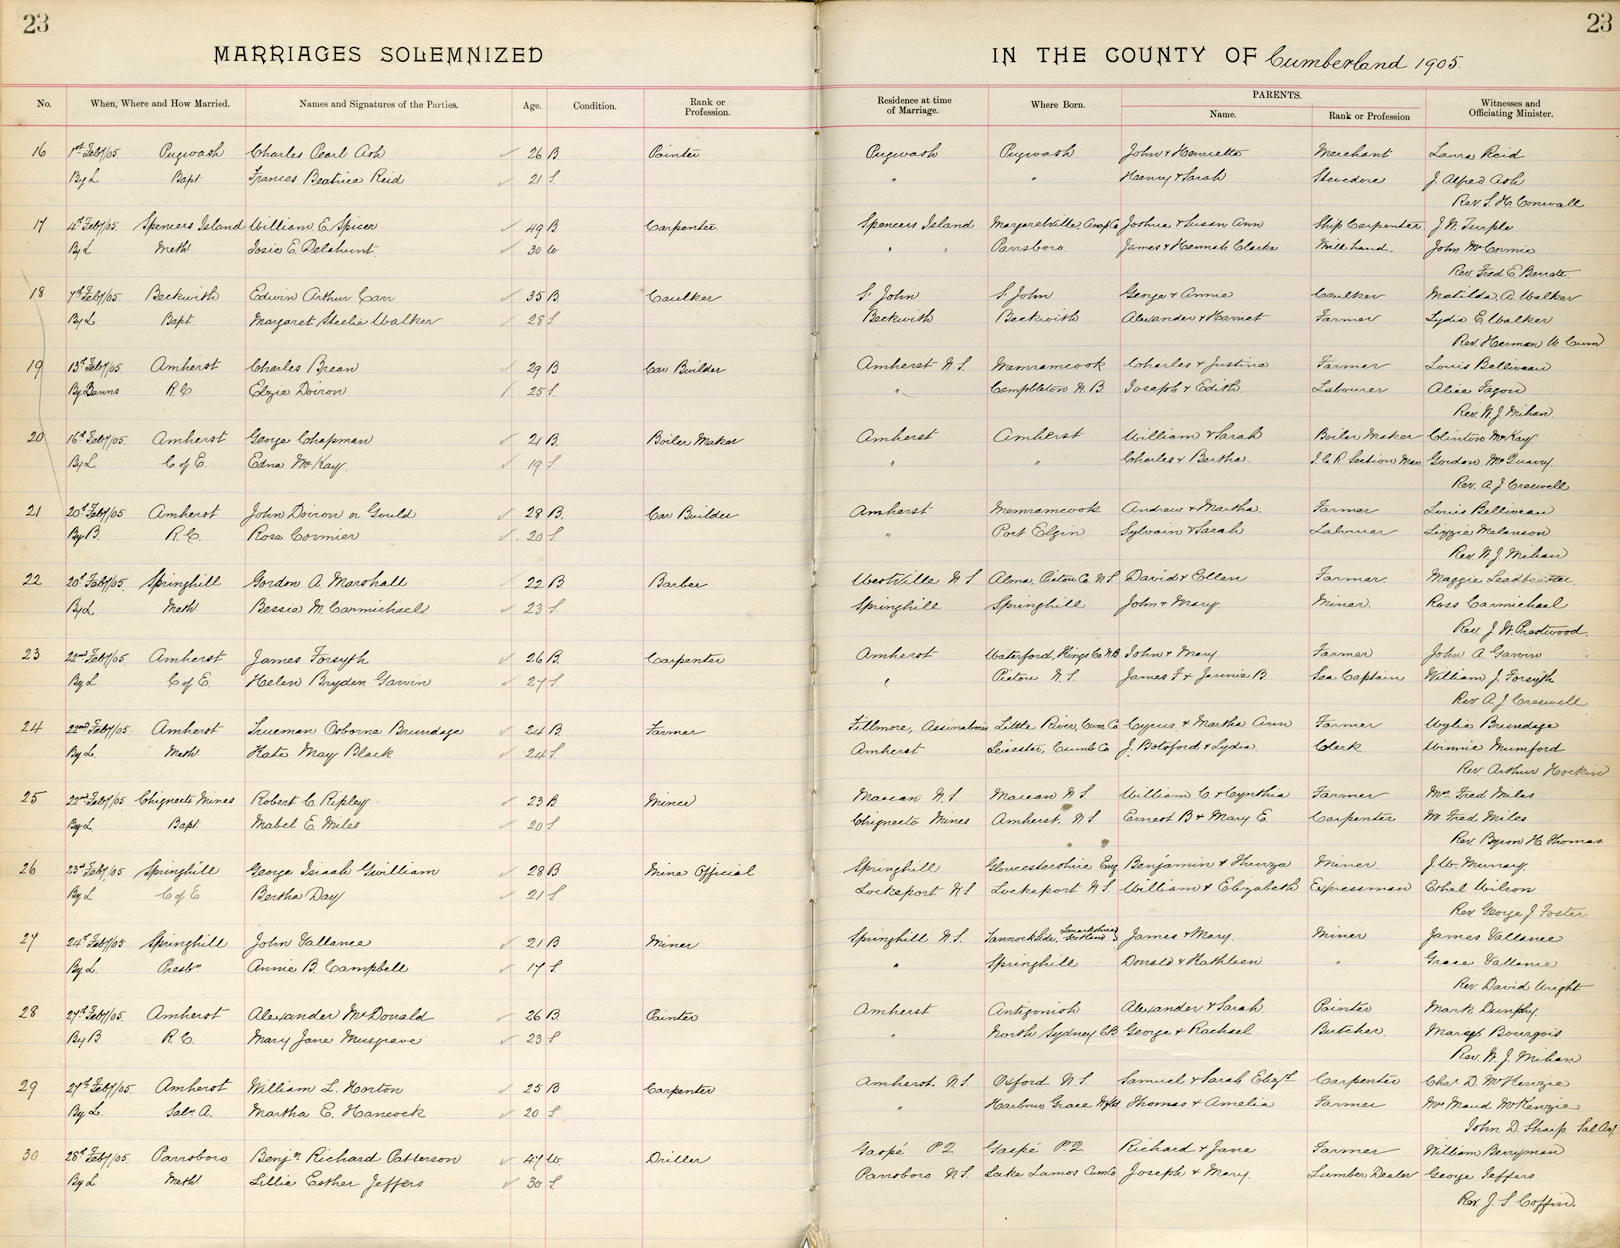 23
23
MARRIAGES SOLEMNIZED
IN THE COUNTY OF Cumberland 1905.
No. When, Where and How Married. Names and Signatures of the Parties. Age. Condition. Rank or Profession. Residence at time of Marriage. Where Born. PARENTS. Name. Rank or Profession Witnesses and Officiating Minister.
16 1st Feby/05 Pugwash Charles Pearl Ash 26 B Painter Pugwash Pugwash John & Henrietta Merchant Laura Reid
By L Bapt Frances Beatrice Reid 21 S " " Henry & Sarah Stevedore J. Alfred Ash
Rev. S. H. Cornwall
17 4th Feby/05 Spencers Island William E. Spicer 49 B Carpenter Spencers Island Margaretville, Anap Co Joshua & Susan Ann Ship Carpenter J. W.
By L Meth Josie E. Delahunt 30 W " " Parrsboro James & Hannah Clarke Mill hand John McCormic
Rev. Fred E
18 7th Feby/05 Beckwith Edwin Arthur Carr 35 B Caulker S. John S. John George & Annie Caulker Matilda A. Walker
By L Bapt Margaret Steelie Walker 28 S Beckwith Beckwith Alexander & Harriet Farmer Lydia E Walker
Rev. Herman
19 13th Feby/05 Amherst Charles Brean 29 B Car Builder Amherst N.S. Memramcook Charles & Justine Farmer Louis Belliveau
By Banns R.C Elzie Doiron 25 S " Campbleton N.B. Joseph & Edith Labourer Alice
Rev. W. J. Mihan
20 16th Feby/05 Amherst George Chapman 21 B. Boiler Maker Amherst Amherst William & Sarah Boiler Maker Clinton McKay
By L C of E. Edna McKay. 19 S " " Charles & Bertha I.C.R Section Man Gordon McQuarry.
Rev. A. J. Creswell
21 20th Feby/05 Amherst John Doiron or Gould 28 B. Car Builder Amherst Memramcook Andrew & Martha Farmer Louis Belliveau
By B. R.C. Rose Cormier 20 S " Port Elgin Sylvain & Sarah Labourer Lizzie Melanson
Rev. W. J. Mihan
22 20th Feby/05 Springhill Gordon A. Marshall 22 B Barber Westville N.S Alma, Pictou Co N.S David & Ellen Farmer Maggie Leadbeatter
By L Meth Bessie M Carmichael 23 S Springhill Springhill John & Mary Miner. Ross Carmichael
Rev. J. W. Prestwood.
23 22nd Feby/05 Amherst James Forsyth 26 B. Carpenter Amherst Waterford, Kings Co N.B John & Mary Farmer John A Garvin
By L C of E. Helen Bryden Garvin 27 S " Pictou N.S. James F & Jennie B Sea Captain William J. Forsyth
Rev A. J Creswell
24 22nd Feby/05 Amherst Trueman Osborne Brundage 24 B Farmer Fillmore, Assinaboia Little River, Cum Co Cyrus & Martha Ann Farmer Wylie Brundage
By L. Meth Kate May Black 24 S. Amherst Leicester, Cumb Co J. Botsford & Lydia Clerk Winnie Mumford
Rev. Arthur Hockin
25 22nd Feby/05 Chignecto Mines Robert C. Ripley 23 B Miner Maccan N.S Maccan N.S William C. & Cynthia Farmer Mrs Fred Miles
By L. Bapt. Mabel E. Miles 20 S Chignecto Mines Amherst. N.S Ernest B & Mary E. Carpenter Mr Fred Miles
Rev Byron H. Thomas
26 23rd Feby/05 Springhill George Isiaah Gwilliam 28 B Mine Official Springhill Glowcestershire Eng Benjamin & Miner J. W. Murray
By L C of E Bertha Day 21 S Lockeport N.S Lockeport N.S. William & Elizabeth Expressman Ethel Wilson
Rev George J Foster
27 24th Feby/05 Springhill John Vallance 21 B Miner Springhill N.S. Tannockside, Lanarkshire Scotland James & Mary. Miner James Vallance
By L. Presbn Annie B. Campbell 17 S " Springhill Donald & Kathleen " Grace Vallance
Rev. David Wright
28 27th Feby/05 Amherst Alexander McDonald 26 B Painter Amherst Antigonish Alexander & Sarah Painter Mark Dunphy.
By B R.C. Mary Jane Musgrave 23 S " North Sydney CB George & Rachael Butcher Bourgois
Rev. W. J. Mihan
29 27th Feby/05 Amherst William L. Horton 25 B Carpenter Amherst. N.S. Oxford N.S. Samuel & Sarah Elizth Carpenter Chas D. McKenzie
By L. Salvn A. Martha E. Hancock 20 S " Harbour Grace Nfld Thomas & Amelia Farmer Mrs Maud McKenzie
John D. Sharp Sal. Army
30 28th Feby/05 Parrsboro Benjn Richard Patterson 47 W Driller Gaspé P.Q Gaspé P.Q Richard & Jane Farmer William Berryman
By L Meth. Lillie Esther Jeffers 30 S Parrsboro N.S. Lake Lamos Cum Co Joseph & Mary. Lumber Dealer George Jeffers
Rev. J. S Coffin.